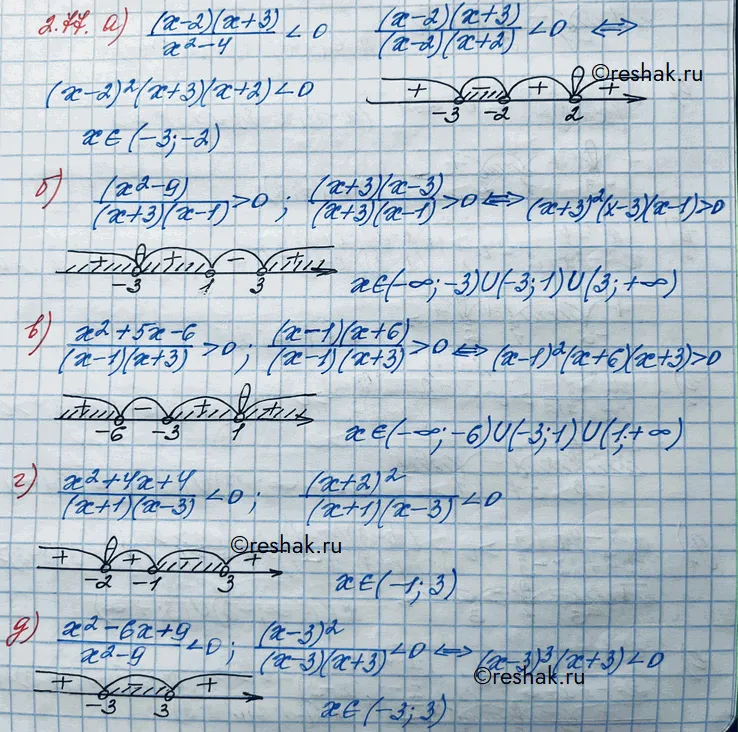 2.77. а) (x-2)(x+3)/(x²-4) < 0 (x-2)(x+3)/((x-2)(x+2)) < 0 ⇔
©reshak.ru
(x-2)²(x+3)(x+2) < 0 + - + +
-3 -2 2
x∈(-3;-2)
б) (x²-9)/((x+3)(x-1)) > 0 ; (x+3)(x-3)/((x+3)(x-1)) > 0 ⇔ (x+3)²(x-3)(x-1) > 0
+ + - +
-3 1 3 x∈(-∞;-3)∪(-3;1)∪(3;+∞)
в) (x²+5x-6)/((x-1)(x+3)) > 0 ; (x-1)(x+6)/((x-1)(x+3)) > 0 ⇔ (x-1)²(x+6)(x+3) > 0
+ - + +
-6 -3 1 x∈(-∞;-6)∪(-3;1)∪(1;+∞)
г) (x²+4x+4)/((x+1)(x-3)) < 0 ; (x+2)²/((x+1)(x-3)) < 0
©reshak.ru
+ + - +
-2 -1 3 x∈(-1;3)
д) (x²-6x+9)/(x²-9) < 0 ; (x-3)²/((x-3)(x+3)) < 0 ⇔ (x-3)³(x+3) < 0
©reshak.ru
+ - +
-3 3 x∈(-3;3)